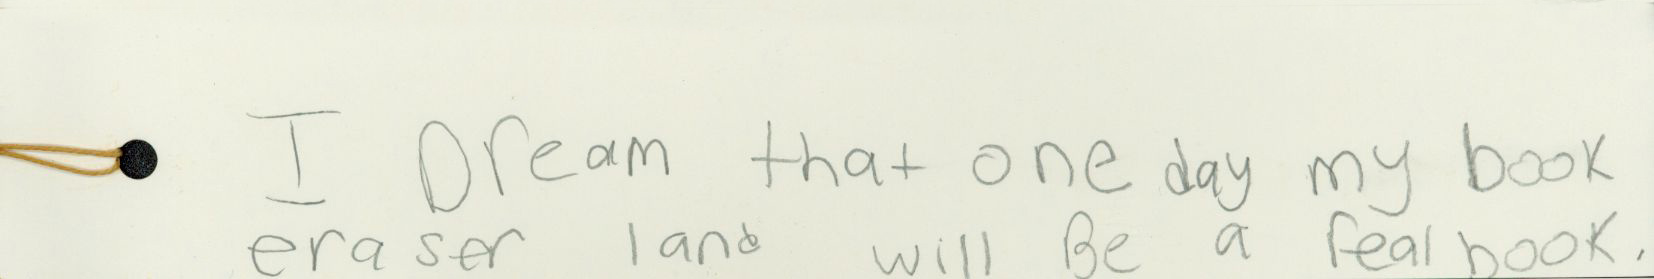 I Dream that one day my book
eraser land will Be a real book.